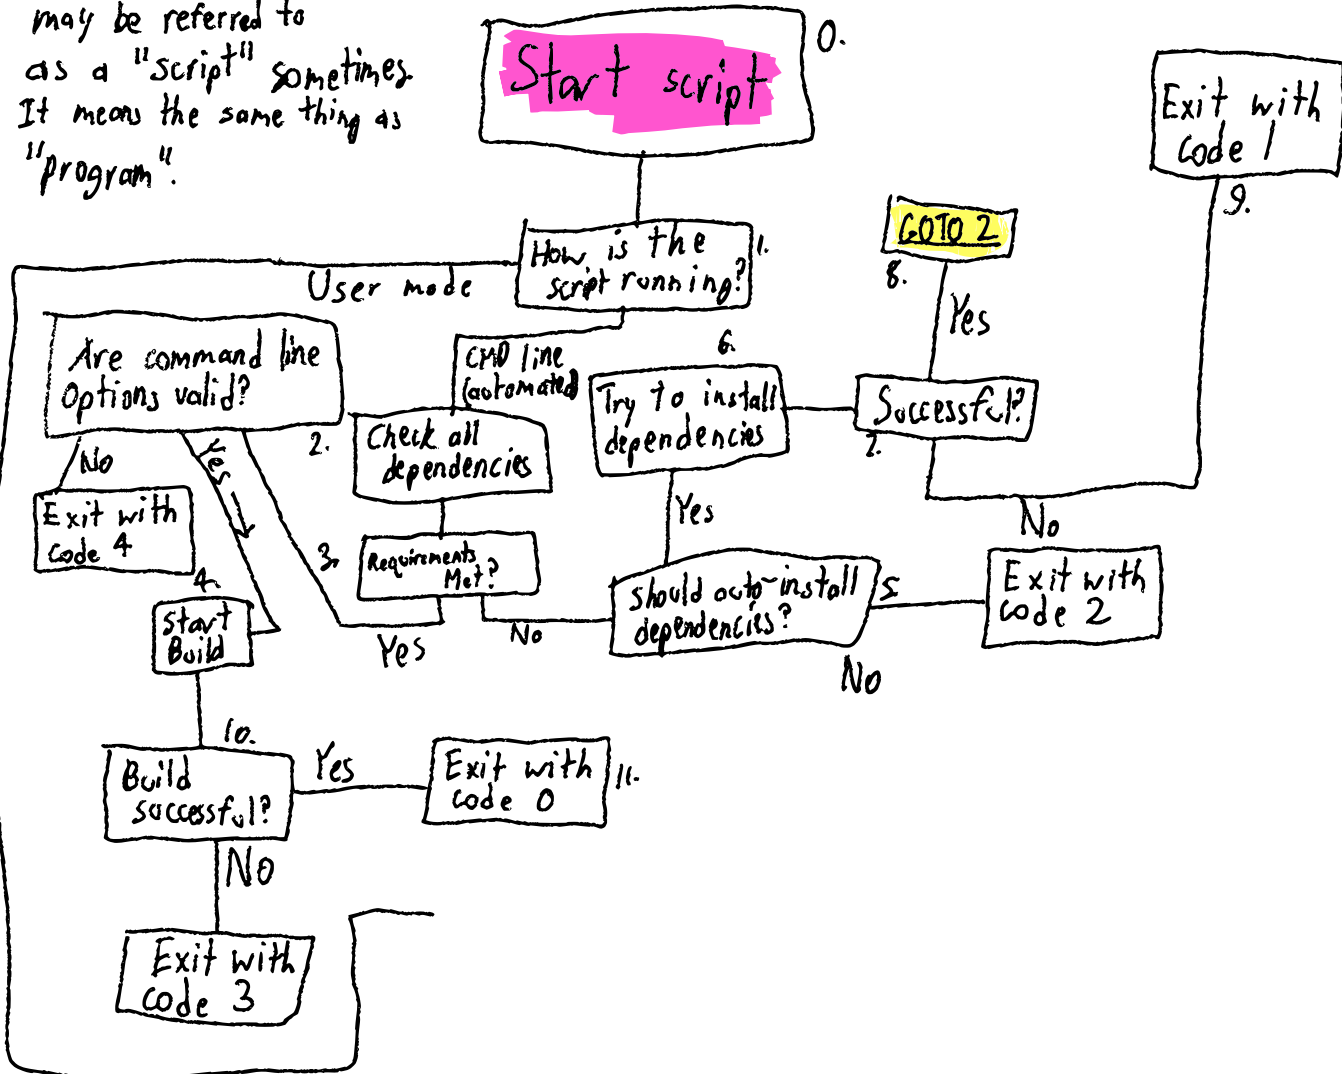 may be referred to
as a "script" sometimes.
It means the same thing as
"program".
Start script
0.
Exit with
code 1
9.
GOTO 2
8.
How is the
script running?
1.
User mode
Yes
Are command line
Options valid?
CMD line
(automated)
6.
Try to install
dependencies
Successful?
7.
No
Yes →
2.
Check all
dependencies
Exit with
code 4
Yes
No
3.
Requirements
Met?
Should auto-install
dependencies?
5.
Exit with
code 2
4.
Start
Build
Yes
No
No
10.
Build
successful?
Yes
Exit with
code 0
11.
No
Exit with
code 3